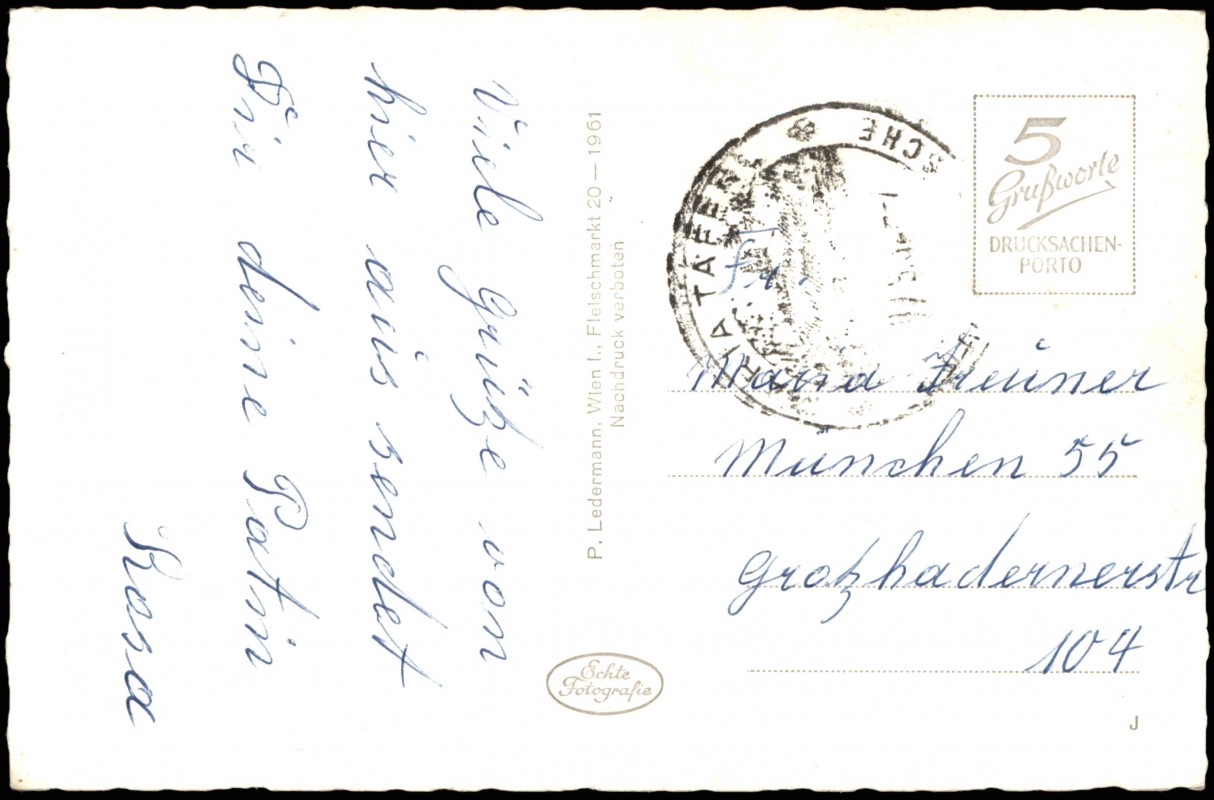 Viele Grüße von
hier aus sendet
Dir deine Patin
Rosa
P. Ledermann, Wien I., Fleischmarkt 20 — 1961
Nachdruck verboten
Echte
Fotografie
5
Grußworte
DRUCKSACHEN-
PORTO
Fr.
Maria Treuner
München 55
Großhadernerstr
104
J